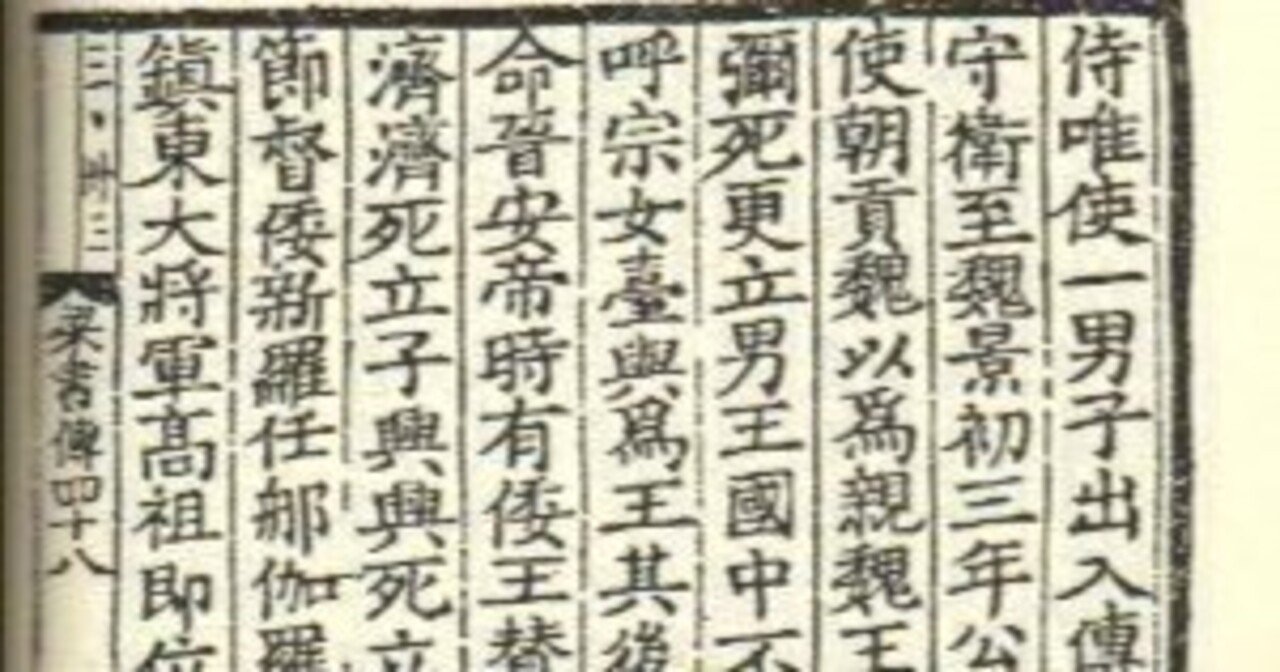 侍唯使一男子出入傳
守衛至魏景初三年公
使朝貢魏以爲親魏王
彌死更立男王國中不
呼宗女臺與爲王其後
命晉安帝時有倭王賛
濟濟死立子興興死立
節督倭新羅任那伽羅
鎮東大將軍髙祖即位
梁書傳四十八